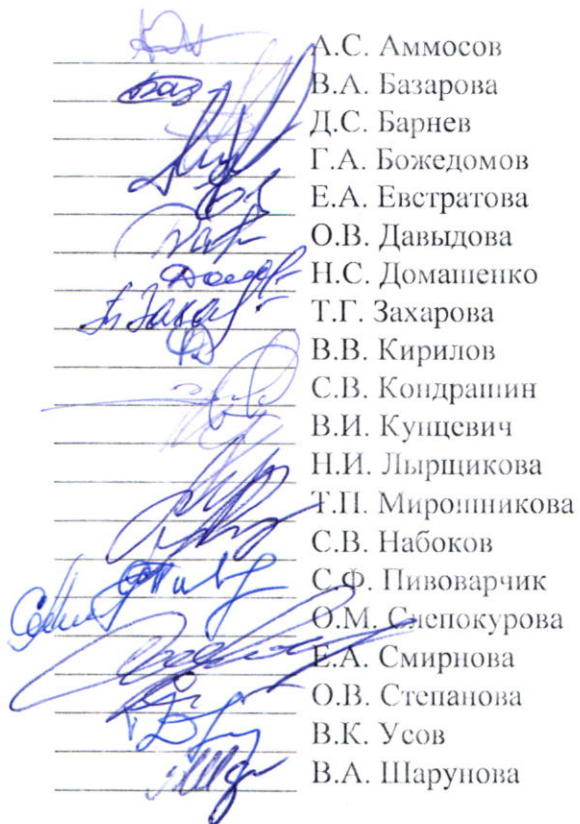 А.С. Аммосов
В.А. Базарова
Д.С. Барнев
Г.А. Божедомов
Е.А. Евстратова
О.В. Давыдова
Н.С. Домашенко
Т.Г. Захарова
В.В. Кирилов
С.В. Кондрашин
В.И. Кунцевич
Н.И. Лырщикова
Т.П. Мирошникова
С.В. Набоков
С.Ф. Пивоварчик
О.М. Слепокурова
Е.А. Смирнова
О.В. Степанова
В.К. Усов
В.А. Шарунова